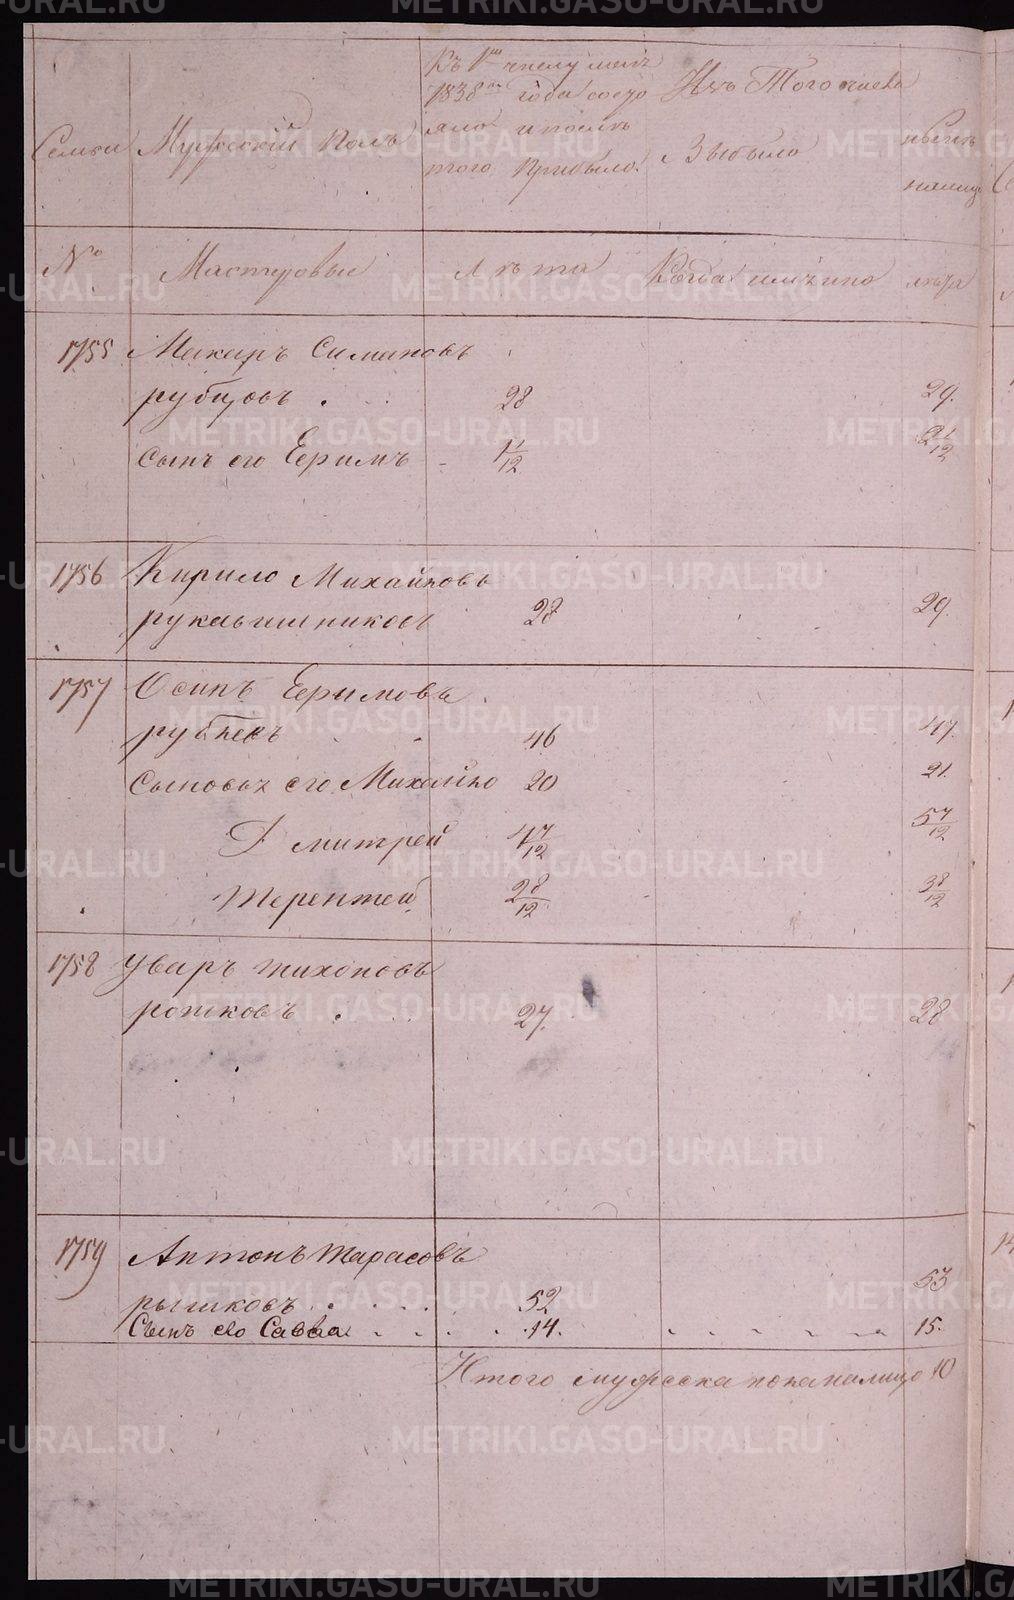 Семьи
Мужеский Полъ
Къ 1му числу маiя
1838го года состо
яло и после
того прибыло.
Изъ Того числа
Выбыло
ныне
налицо
№
Мастеровые
Лета
Когда именно
лета
1755 Макаръ Симановъ
рубцовъ . 28 29.
Сынъ его Ефимъ - 11/12 1 11/12
1756 Кирило Михайловъ
рукавишниковъ 28 29.
1757 Осипъ Ефимовъ
46 47.
Сыновья его Михайло 20 21.
Дмитрей 4 7/12 5 7/12
Терентей 2 8/12 3 8/12
1758 Уваръ тихоновъ
рожковъ . 27. 28
1759 Антонъ тарасовъ
рышковъ . . . . . 52 53
Сынъ его Савва . . . . . 14. 15.
Итого мужеска пола налицо 10
METRIKI.GASO-URAL.RU